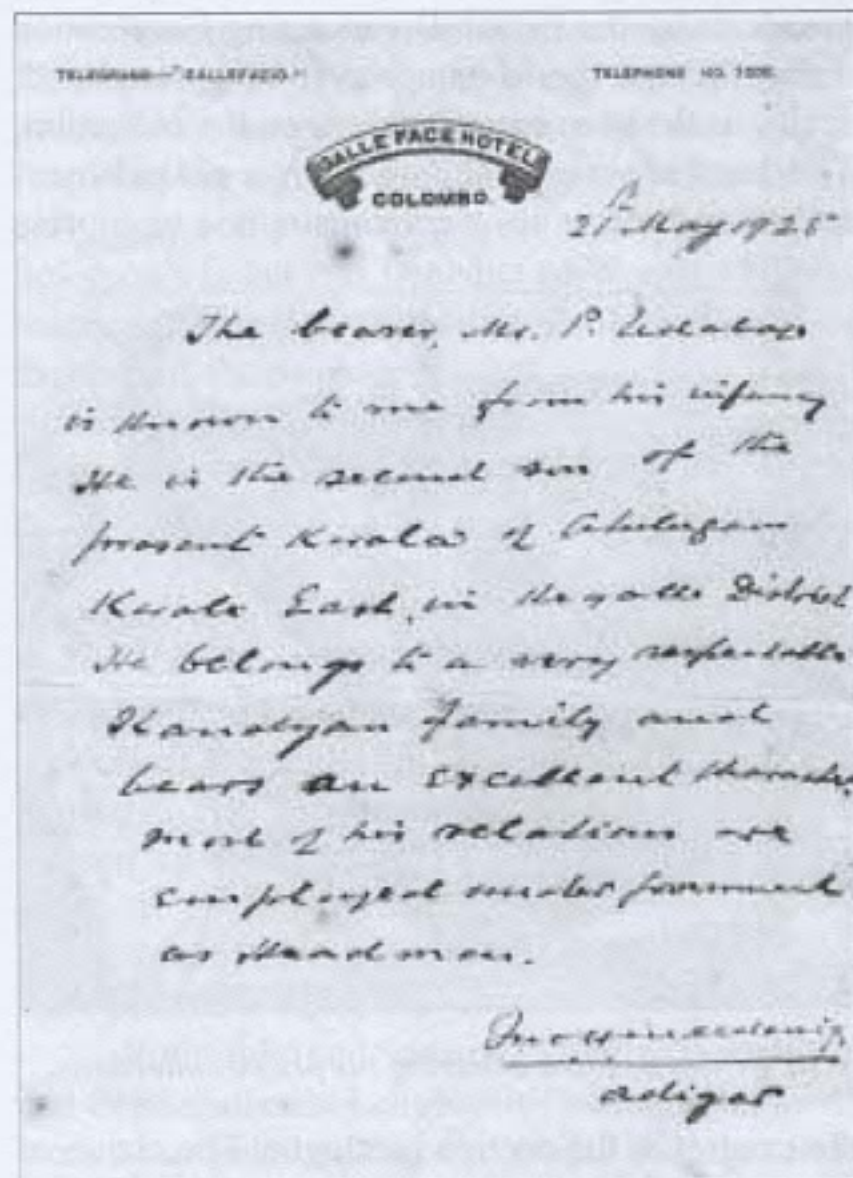 TELEGRAMS—"GALLEFACIO."
TELEPHONE NO. 1000.
GALLE FACE HOTEL
COLOMBO.
21st May 1925
The bearer, Mr. P.
is known to me from his infancy
He is the second son of the
present Korala of
Korale East, in Kegalle District
He belongs to a very respectable
Kandyan family and
bears an excellent character.
most of his relations are
employed under government
as Headmen.
adigar